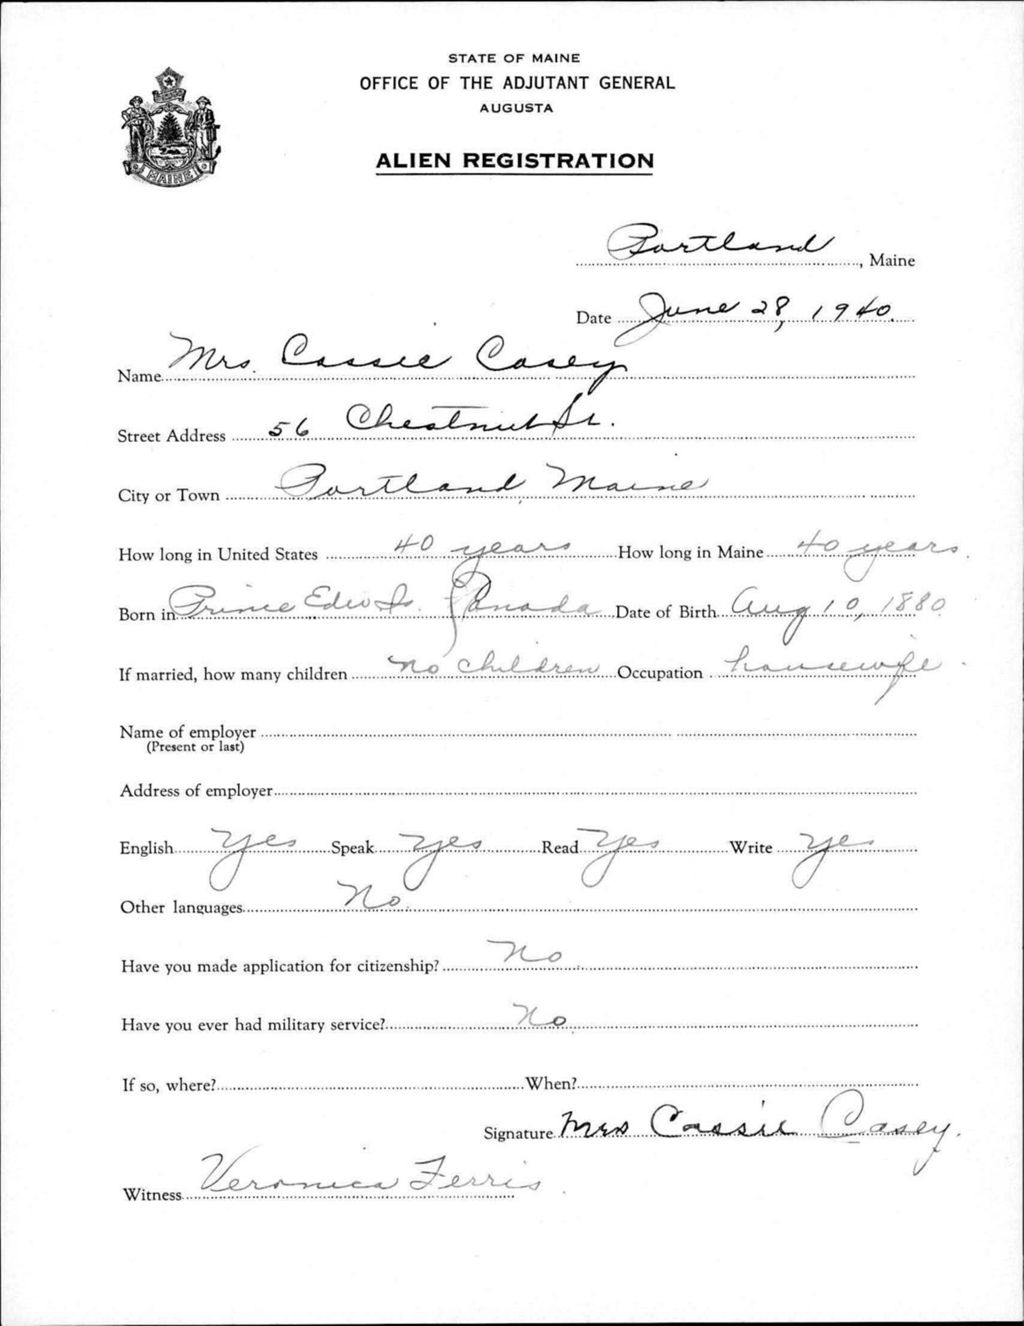 STATE OF MAINE
OFFICE OF THE ADJUTANT GENERAL
AUGUSTA
ALIEN REGISTRATION
MAINE
Portland, Maine
Date June 28, 1940.
Name Mrs. Cassie Casey
Street Address 56 Chestnut St.
City or Town Portland, Maine
How long in United States 40 years How long in Maine 40 years.
Born in Prince Edw Is. Canada Date of Birth Aug 10, 1880
If married, how many children no children Occupation housewife.
Name of employer
(Present or last)
Address of employer
English yes Speak yes Read yes Write yes
Other languages No.
Have you made application for citizenship? No
Have you ever had military service? No
If so, where? When?
Signature Mrs Cassie Casey.
Witness Veronica Ferris